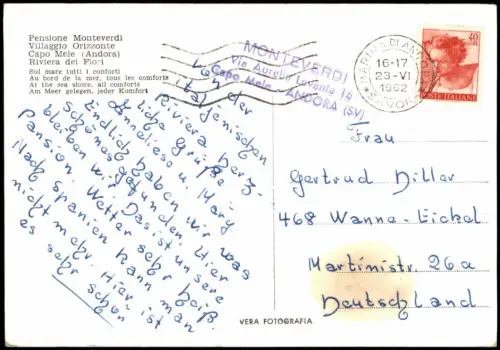 Pensione Monteverdi
Villaggio Orizzonte
Capo Mele (Andora)
Riviera dei Fiori
Sul mare tutti i conforti
Au bord de la mer, tous les comforts
At the sea shore, all comforts
Am Meer gelegen, jeder Komfort
MONTEVERDI
Via Aurelio Levante 14
Capo Mele - ANDORA (SV)
MARINA DI ANDORA
16-17
23-VI
1962
SAVONA
40
POSTE ITALIANE
Von der
italienischen
Riviera herz-
liche Grüße
Anneliess u. Marg
Endlich haben wir was
Schönes gefunden wir
bleiben. Das ist unsere
Pansion. Wetter sehr heiß.
Nach Spanien kann man
nicht mehr. Hier ist
es sehr schön
Frau
Gertrud Diller
468 Wanne-Eickel
Martinistr. 26a
Deutschland
VERA FOTOGRAFIA